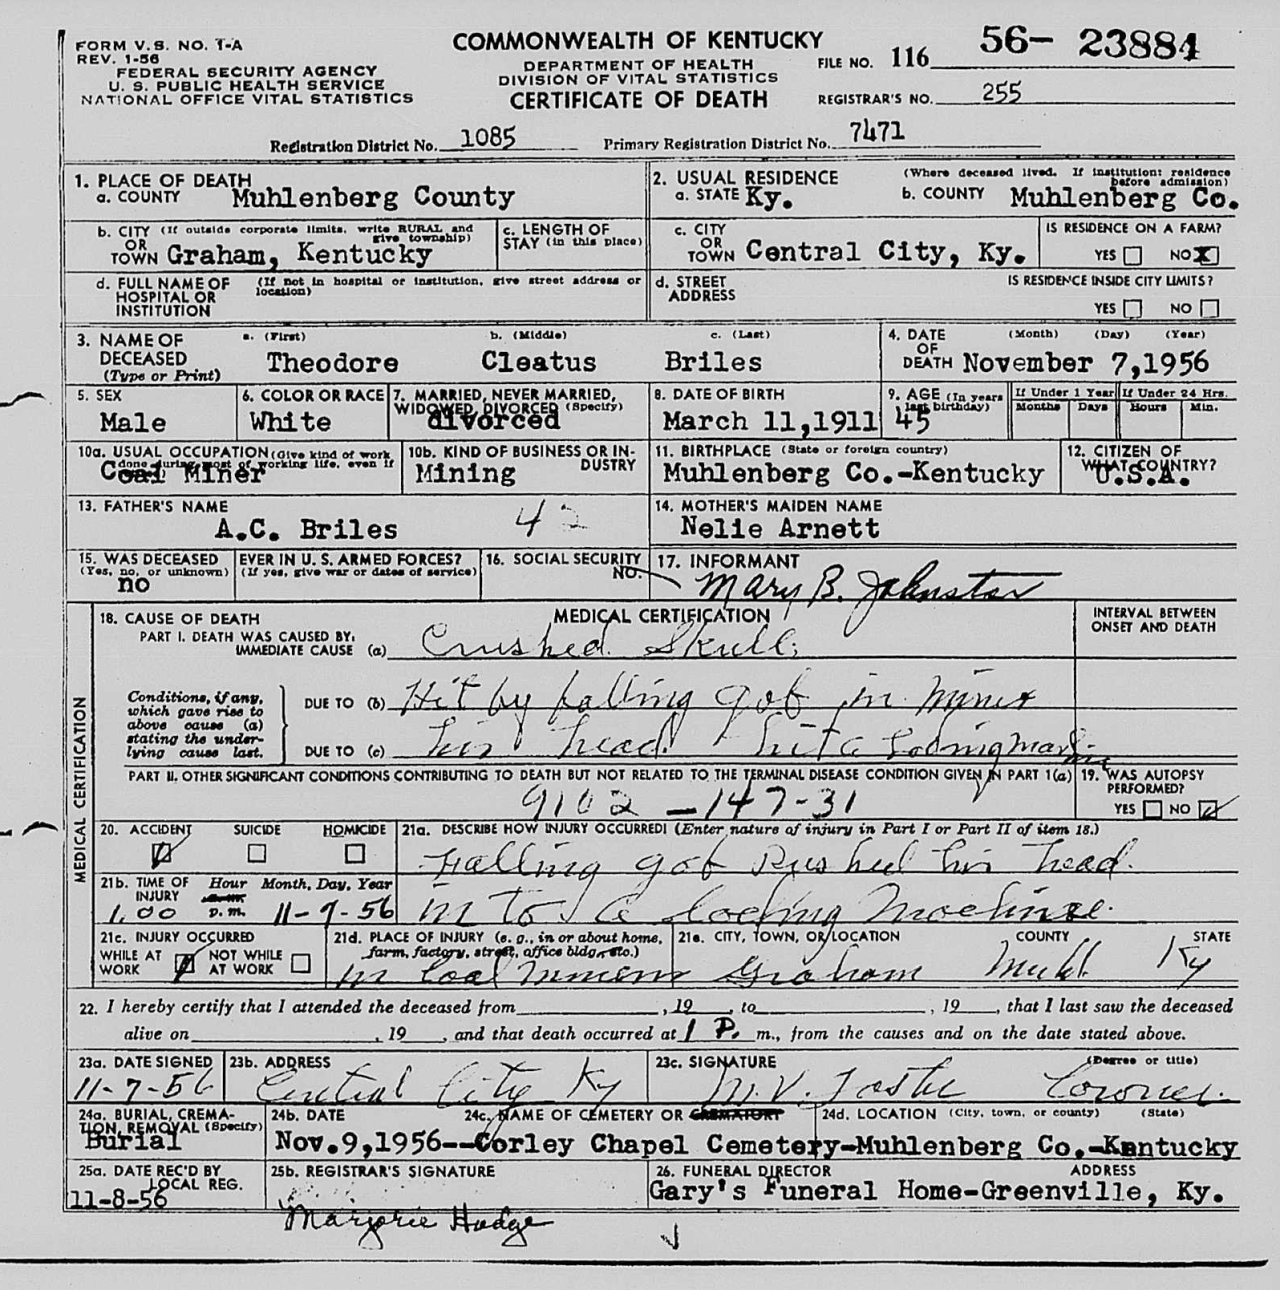 FORM V.S. NO. 1-A
REV. 1-56
FEDERAL SECURITY AGENCY
U. S. PUBLIC HEALTH SERVICE
NATIONAL OFFICE VITAL STATISTICS
COMMONWEALTH OF KENTUCKY
DEPARTMENT OF HEALTH
DIVISION OF VITAL STATISTICS
CERTIFICATE OF DEATH
FILE NO. 116 56- 23884
REGISTRAR'S NO. 255
Registration District No. 1085 Primary Registration District No. 7471
1. PLACE OF DEATH
a. COUNTY Muhlenberg County
2. USUAL RESIDENCE (Where deceased lived. If institution: residence before admission)
a. STATE Ky. b. COUNTY Muhlenberg Co.
b. CITY (If outside corporate limits, write RURAL and give township)
OR
TOWN Graham, Kentucky
c. LENGTH OF
STAY (in this place)
c. CITY
OR
TOWN Central City, Ky.
IS RESIDENCE ON A FARM?
YES NO X
d. FULL NAME OF (If not in hospital or institution, give street address or location)
HOSPITAL OR
INSTITUTION
d. STREET
ADDRESS
IS RESIDENCE INSIDE CITY LIMITS?
YES NO
3. NAME OF
DECEASED
(Type or Print)
a. (First) b. (Middle) c. (Last)
Theodore Cleatus Briles
4. DATE (Month) (Day) (Year)
OF
DEATH November 7,1956
5. SEX
Male
6. COLOR OR RACE
White
7. MARRIED, NEVER MARRIED,
WIDOWED, DIVORCED (Specify)
divorced
8. DATE OF BIRTH
March 11,1911
9. AGE (In years last birthday)
45
If Under 1 Year If Under 24 Hrs.
Months Days Hours Min.
10a. USUAL OCCUPATION (Give kind of work done during most of working life, even if
Coal Miner
10b. KIND OF BUSINESS OR INDUSTRY
Mining
11. BIRTHPLACE (State or foreign country)
Muhlenberg Co.-Kentucky
12. CITIZEN OF
WHAT COUNTRY?
U.S.A.
13. FATHER'S NAME
A.C. Briles 42
14. MOTHER'S MAIDEN NAME
Nelie Arnett
15. WAS DECEASED EVER IN U. S. ARMED FORCES?
(Yes, no, or unknown) (If yes, give war or dates of service)
no
16. SOCIAL SECURITY
NO.
17. INFORMANT
Mary B. Johnston
18. CAUSE OF DEATH MEDICAL CERTIFICATION
INTERVAL BETWEEN
ONSET AND DEATH
PART I. DEATH WAS CAUSED BY:
IMMEDIATE CAUSE (a) Crushed Skull;
Conditions, if any,
which gave rise to
above cause (a)
stating the under-
lying cause last.
DUE TO (b) Hit by falling gob in mines
DUE TO (c) his head hit a
PART II. OTHER SIGNIFICANT CONDITIONS CONTRIBUTING TO DEATH BUT NOT RELATED TO THE TERMINAL DISEASE CONDITION GIVEN IN PART 1(a)
9102 -147-31
19. WAS AUTOPSY
PERFORMED?
YES NO
MEDICAL CERTIFICATION
20. ACCIDENT SUICIDE HOMICIDE
21a. DESCRIBE HOW INJURY OCCURRED! (Enter nature of injury in Part I or Part II of item 18.)
Falling gob Pushed his head
in to a loading Machine.
21b. TIME OF
INJURY
Hour Month, Day, Year
1.00 p.m. 11-7-56
21c. INJURY OCCURRED
WHILE AT
WORK
NOT WHILE
AT WORK
21d. PLACE OF INJURY (e. g., in or about home,
farm, factory, street, office bldg., etc.)
in Coal
21e. CITY, TOWN, OR LOCATION COUNTY STATE
Graham Muhl Ky
22. I hereby certify that I attended the deceased from , 19 , to , 19 , that I last saw the deceased
alive on , 19 , and that death occurred at 1 P. m., from the causes and on the date stated above.
23a. DATE SIGNED
11-7-56
23b. ADDRESS
Central City Ky
23c. SIGNATURE (Degree or title)
M.V. Coroner.
24a. BURIAL, CREMA-
TION, REMOVAL (Specify)
Burial
24b. DATE
24c. NAME OF CEMETERY OR CREMATORY
24d. LOCATION (City, town, or county) (State)
Nov.9,1956--Corley Chapel Cemetery-Muhlenberg Co.-Kentucky
25a. DATE REC'D BY
LOCAL REG.
11-8-56
25b. REGISTRAR'S SIGNATURE
Marjorie Hodge
26. FUNERAL DIRECTOR ADDRESS
Gary's Funeral Home-Greenville, Ky.